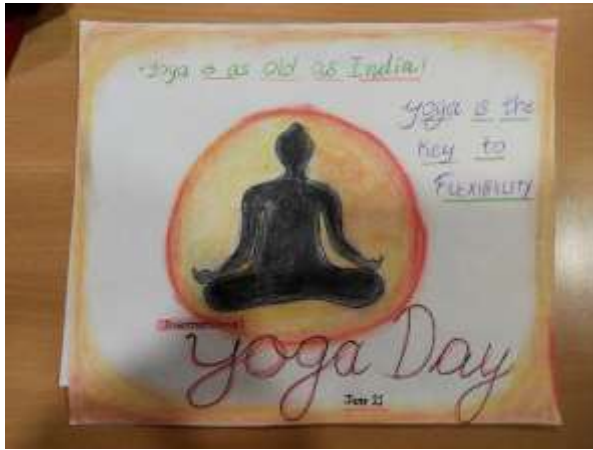 Yoga is as old as India!
Yoga is the
Key to
FLEXIBILITY
International
Yoga Day
June 21